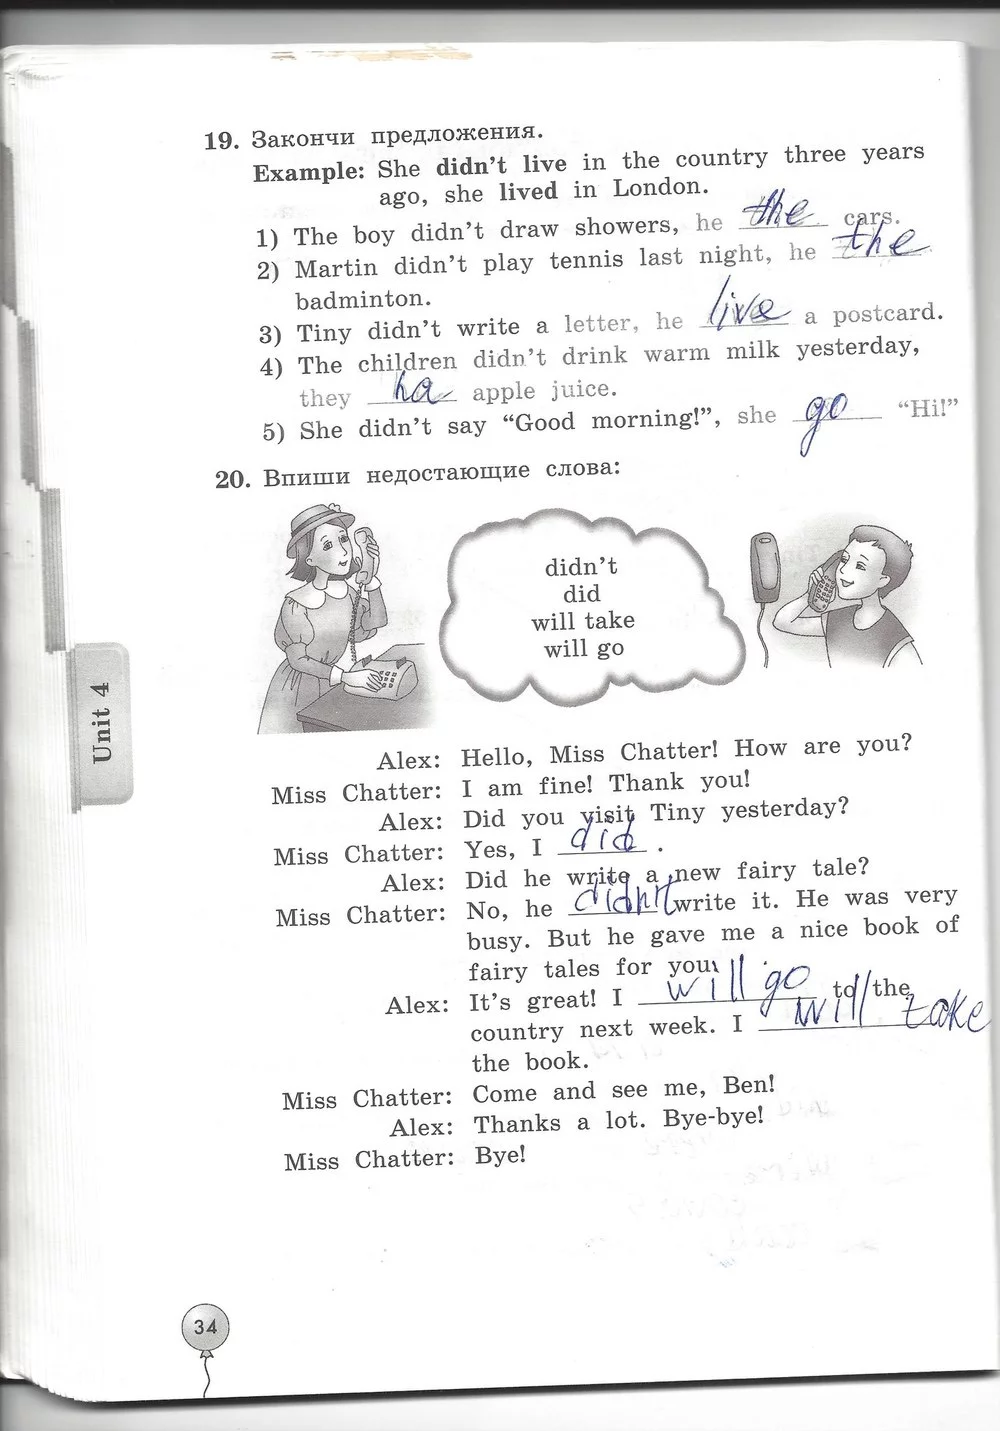 19. Закончи предложения.
Example: She didn't live in the country three years
ago, she lived in London.
1) The boy didn't draw showers, he the cars.
2) Martin didn't play tennis last night, he the
badminton.
3) Tiny didn't write a letter, he live a postcard.
4) The children didn't drink warm milk yesterday,
they ha apple juice.
5) She didn't say “Good morning!”, she go “Hi!”
20. Впиши недостающие слова:
didn't
did
will take
will go
Unit 4
Alex: Hello, Miss Chatter! How are you?
Miss Chatter: I am fine! Thank you!
Alex: Did you visit Tiny yesterday?
Miss Chatter: Yes, I did .
Alex: Did he write a new fairy tale?
Miss Chatter: No, he didn't write it. He was very
busy. But he gave me a nice book of
fairy tales for you.
Alex: It's great! I will go to the
country next week. I will take
the book.
Miss Chatter: Come and see me, Ben!
Alex: Thanks a lot. Bye-bye!
Miss Chatter: Bye!
34